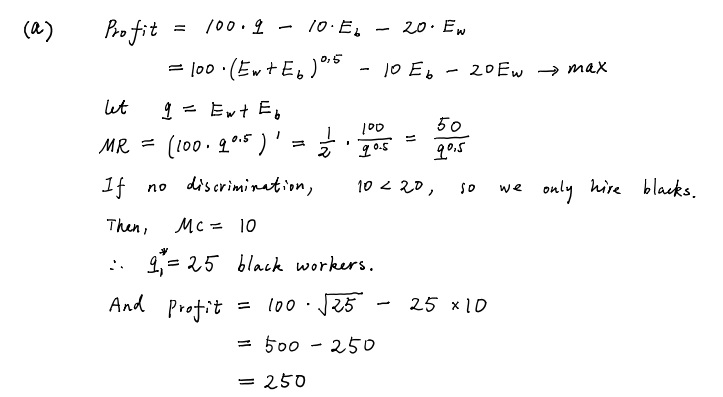 (a) Profit = 100·q - 10·E_b - 20·E_w
= 100·(E_w + E_b)^0.5 - 10 E_b - 20 E_w → max
let q = E_w + E_b
MR = (100·q^0.5)' = 1/2 · 100/q^0.5 = 50/q^0.5
If no discrimination, 10 < 20, so we only hire blacks.
Then, MC = 10
∴ q_1^* = 25 black workers.
And Profit = 100·√25 - 25 × 10
= 500 - 250
= 250